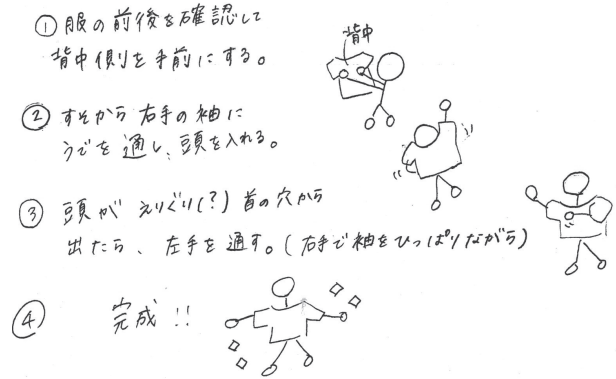 ① 服の前後を確認して
背中側を手前にする。
背中
② すそから右手の袖に
うでを通し、頭を入れる。
③ 頭が えりぐり(?) 首の穴から
出たら、左手を通す。(右手で袖をひっぱりながら)
④ 完成!!